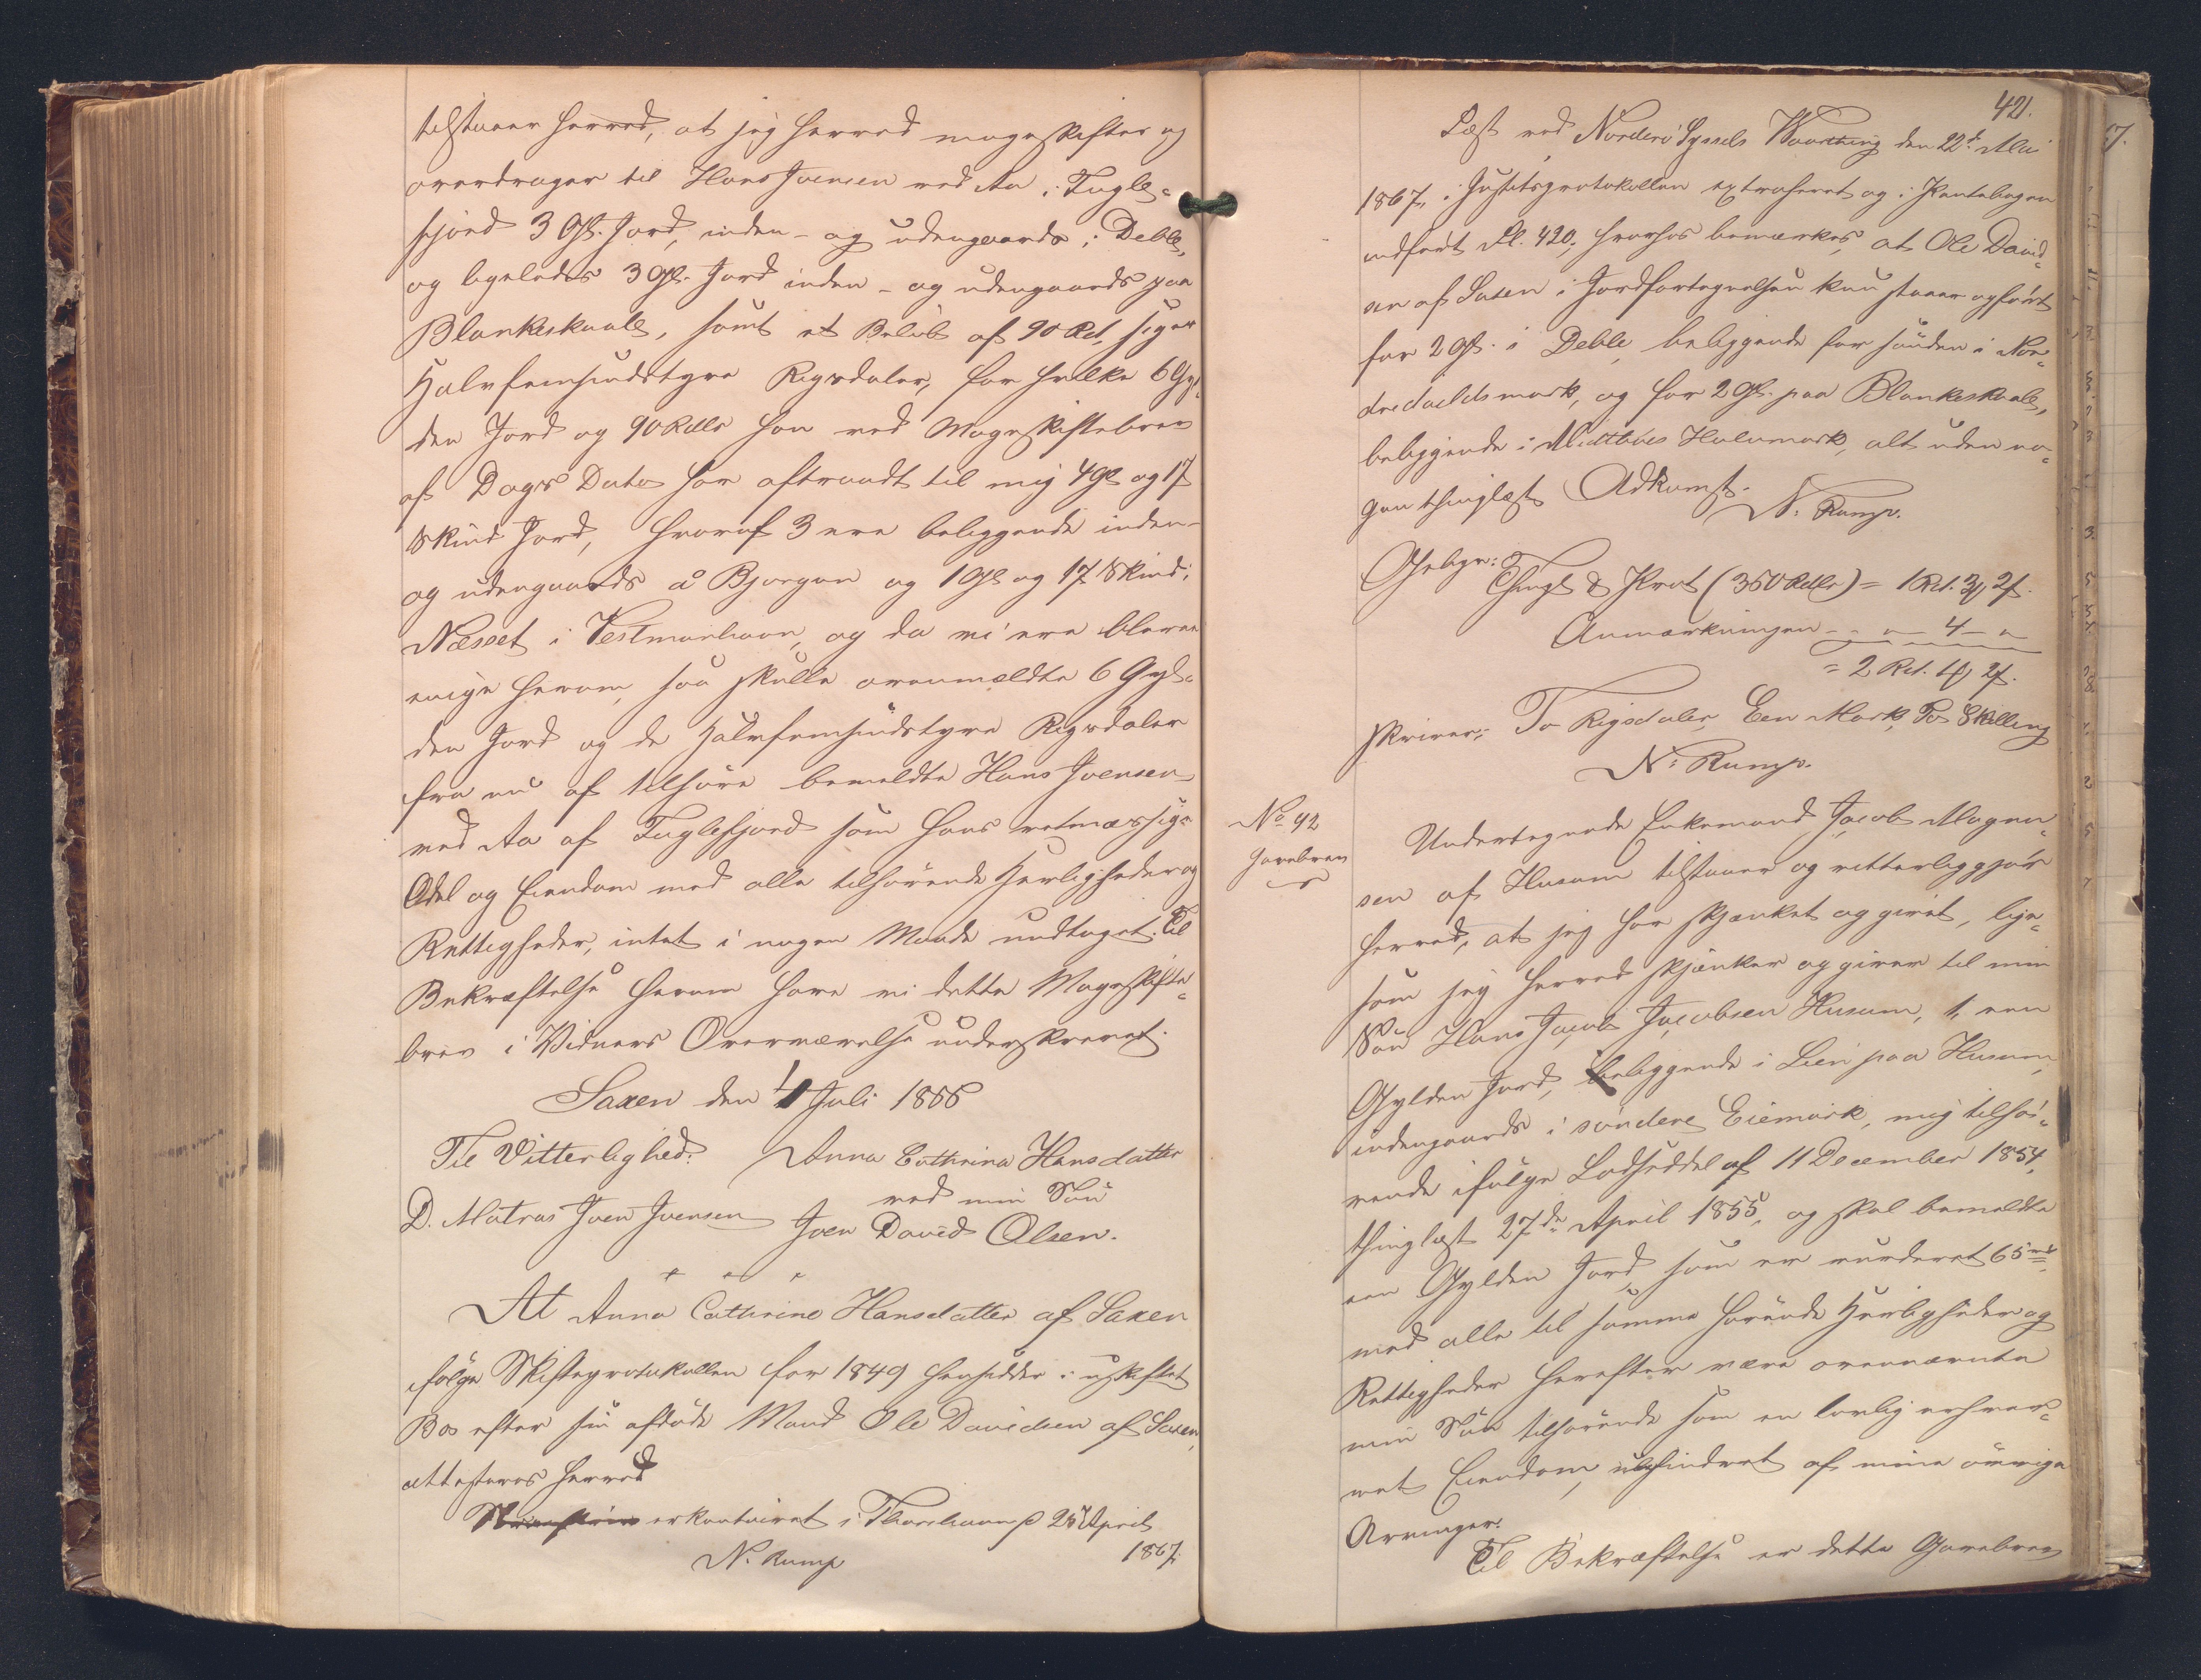 tilstaaer herved, at jeg herved mageskifter og
overdrager til Hans Joensen ved Aa i Fugle-
fjord 3 Gl. Jord, inden- og udengaards i Deble,
og ligeledes 3 Gl. Jord inden- og udengaards paa
Blankeskaale, samt et Beløb af 90 Rd, siger
Halvfemsindstyve Rigsdaler, for hvilke 6 Gyl-
den Jord og 90 Rdlr han ved Mageskiftebrev
af Dags Dato har aftraadt til mig 4 Gl og 17
Skind Jord, hvoraf 3 ere beliggende inden-
og udengaards å Bjørgum og 1 Gl og 17 Skind i
Næsset i Vestmanhavn, og da vi ere blevne
enige herom, saa skulle ovenmældte 6 Gyl-
den Jord og de halvfemsindstyve Rigsdaler
fra nu af tilhøre bemeldte Hans Joensen
ved Aa af Fuglefjord som hans retmæssige
Odel og Eiendom med alle tilhørende Herligheder og
Rettigheder, intet i nogen Maade undtaget. Til
Bekræftelse herom have vi dette Mageskifte-
brev i Vidners Overværelse underskrevet.
Saxen den 4 Juli 1866
Til Vitterlighed: Anna Cathrina Hansdatter
ved min Søn
D. Matras Joen Joensen Joen David Olsen.
At Anna Cathrine Hansdatter af Saxen
ifølge Skifteprotokollen for 1849 hensidder i uskiftet
Bo efter sin afdøde Mand Ole Davidsen af Saxen,
attesteres herved
erkontoiret i Thorshavn d 25 April
N. Rump 1867.
421.
Læst ved Norderø Syssels Vaarthing den 22d. Mai
1867, i Justitsprotokollen extraheret og i Pantebogen
indført Fol. 420, hvorhos bemærkes, at Ole David-
sen af Saxen i Jordfortegnelsen kun staaer opført
for 2 Gl. i Deble, beliggende for sønden i Nor-
dredaelsmark, og for 2 Gl. paa Blankeskaale,
beliggende i Midtbøes Halvmark, alt uden no-
gen thinglæst Adkomst.
N. Rump.
Gebyr:
Thingl & Prot (350 Rdlr) = 1 Rd. 3 ℳ 2 ß.
Anmærkningen - " - 4 - "
= 2 Rd. 1 ℳ 2 ß.
skriver: To Rigsdaler, Een Mark, To Skilling
N. Rump.
No 92
Gavebrev
Undertegnede Enkemand Jacob Magnu-
sen af Husum tilstaaer og vitterliggjør
herved, at jeg har skjænket og givet, lige-
som jeg herved skjænker og giver til min
Søn Hans Jacob Jacobsen Husum, 1, een
Gylden Jord, beliggende i Lien paa Husum,
indengaards i søndere Eiemark, mig tilhø-
rende ifølge Lodseddel af 11 December 1854,
thinglæst 27de April 1855, og skal bemeldte
een Gylden Jord, som er vurderet 65 rd
med alle til samme hørende Herligheder og
Rettigheder herefter være ovennævnte
min Søn tilhørende som en lovlig erhver-
vet Eiendom, uhindret af mine øvrige
Arvinger.
Til Bekræftelse er dette Gavebrev